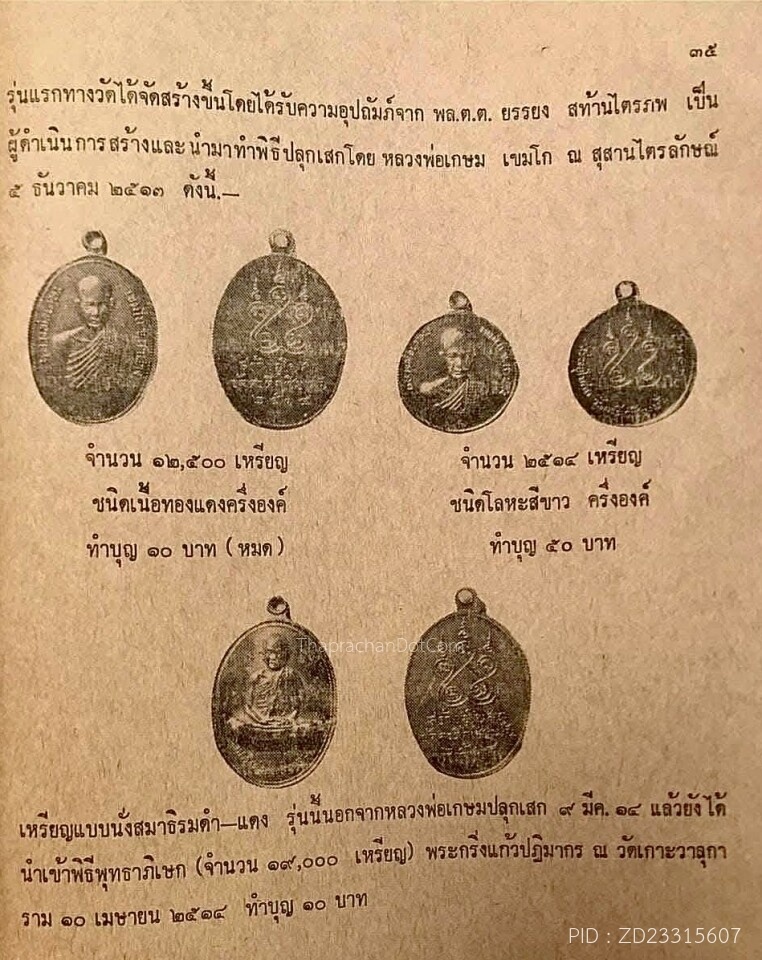 ๓๕
รุ่นแรกทางวัดได้จัดสร้างขึ้นโดยได้รับความอุปถัมภ์จาก พล.ต.ต. ยรรยง สท้านไตรภพ เป็น
ผู้ดำเนินการสร้างและนำมาทำพิธีปลุกเสกโดย หลวงพ่อเกษม เขมโก ณ สุสานไตรลักษณ์
๕ ธันวาคม ๒๕๑๓ ดังนี้.—
จำนวน ๑๒,๕๐๐ เหรียญ
ชนิดเนื้อทองแดงครึ่งองค์
ทำบุญ ๑๐ บาท (หมด)
จำนวน ๒๕๑๔ เหรียญ
ชนิดโลหะสีขาว ครึ่งองค์
ทำบุญ ๕๐ บาท
ThaprachanDotCom
เหรียญแบบนั่งสมาธิรมดำ—แดง รุ่นนี้นอกจากหลวงพ่อเกษมปลุกเสก ๙ มีค. ๑๔ แล้วยังได้
นำเข้าพิธีพุทธาภิเษก (จำนวน ๑๙,๐๐๐ เหรียญ) พระกริ่งแก้วปฏิมากร ณ วัดเกาะวาลุกา
ราม ๑๐ เมษายน ๒๕๑๔ ทำบุญ ๑๐ บาท
PID : ZD23315607